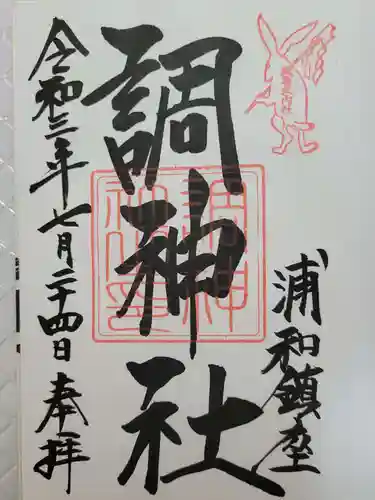 浦和鎮座
調神社
調神社之印
令和三年七月二十四日 奉拝